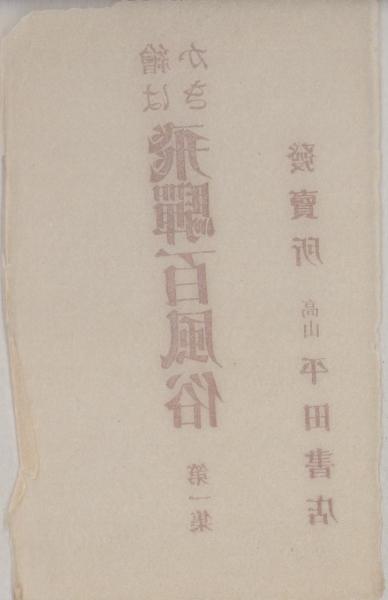 繪は
かき
飛驒百風俗 第一集
發賣所 高山 平田書店